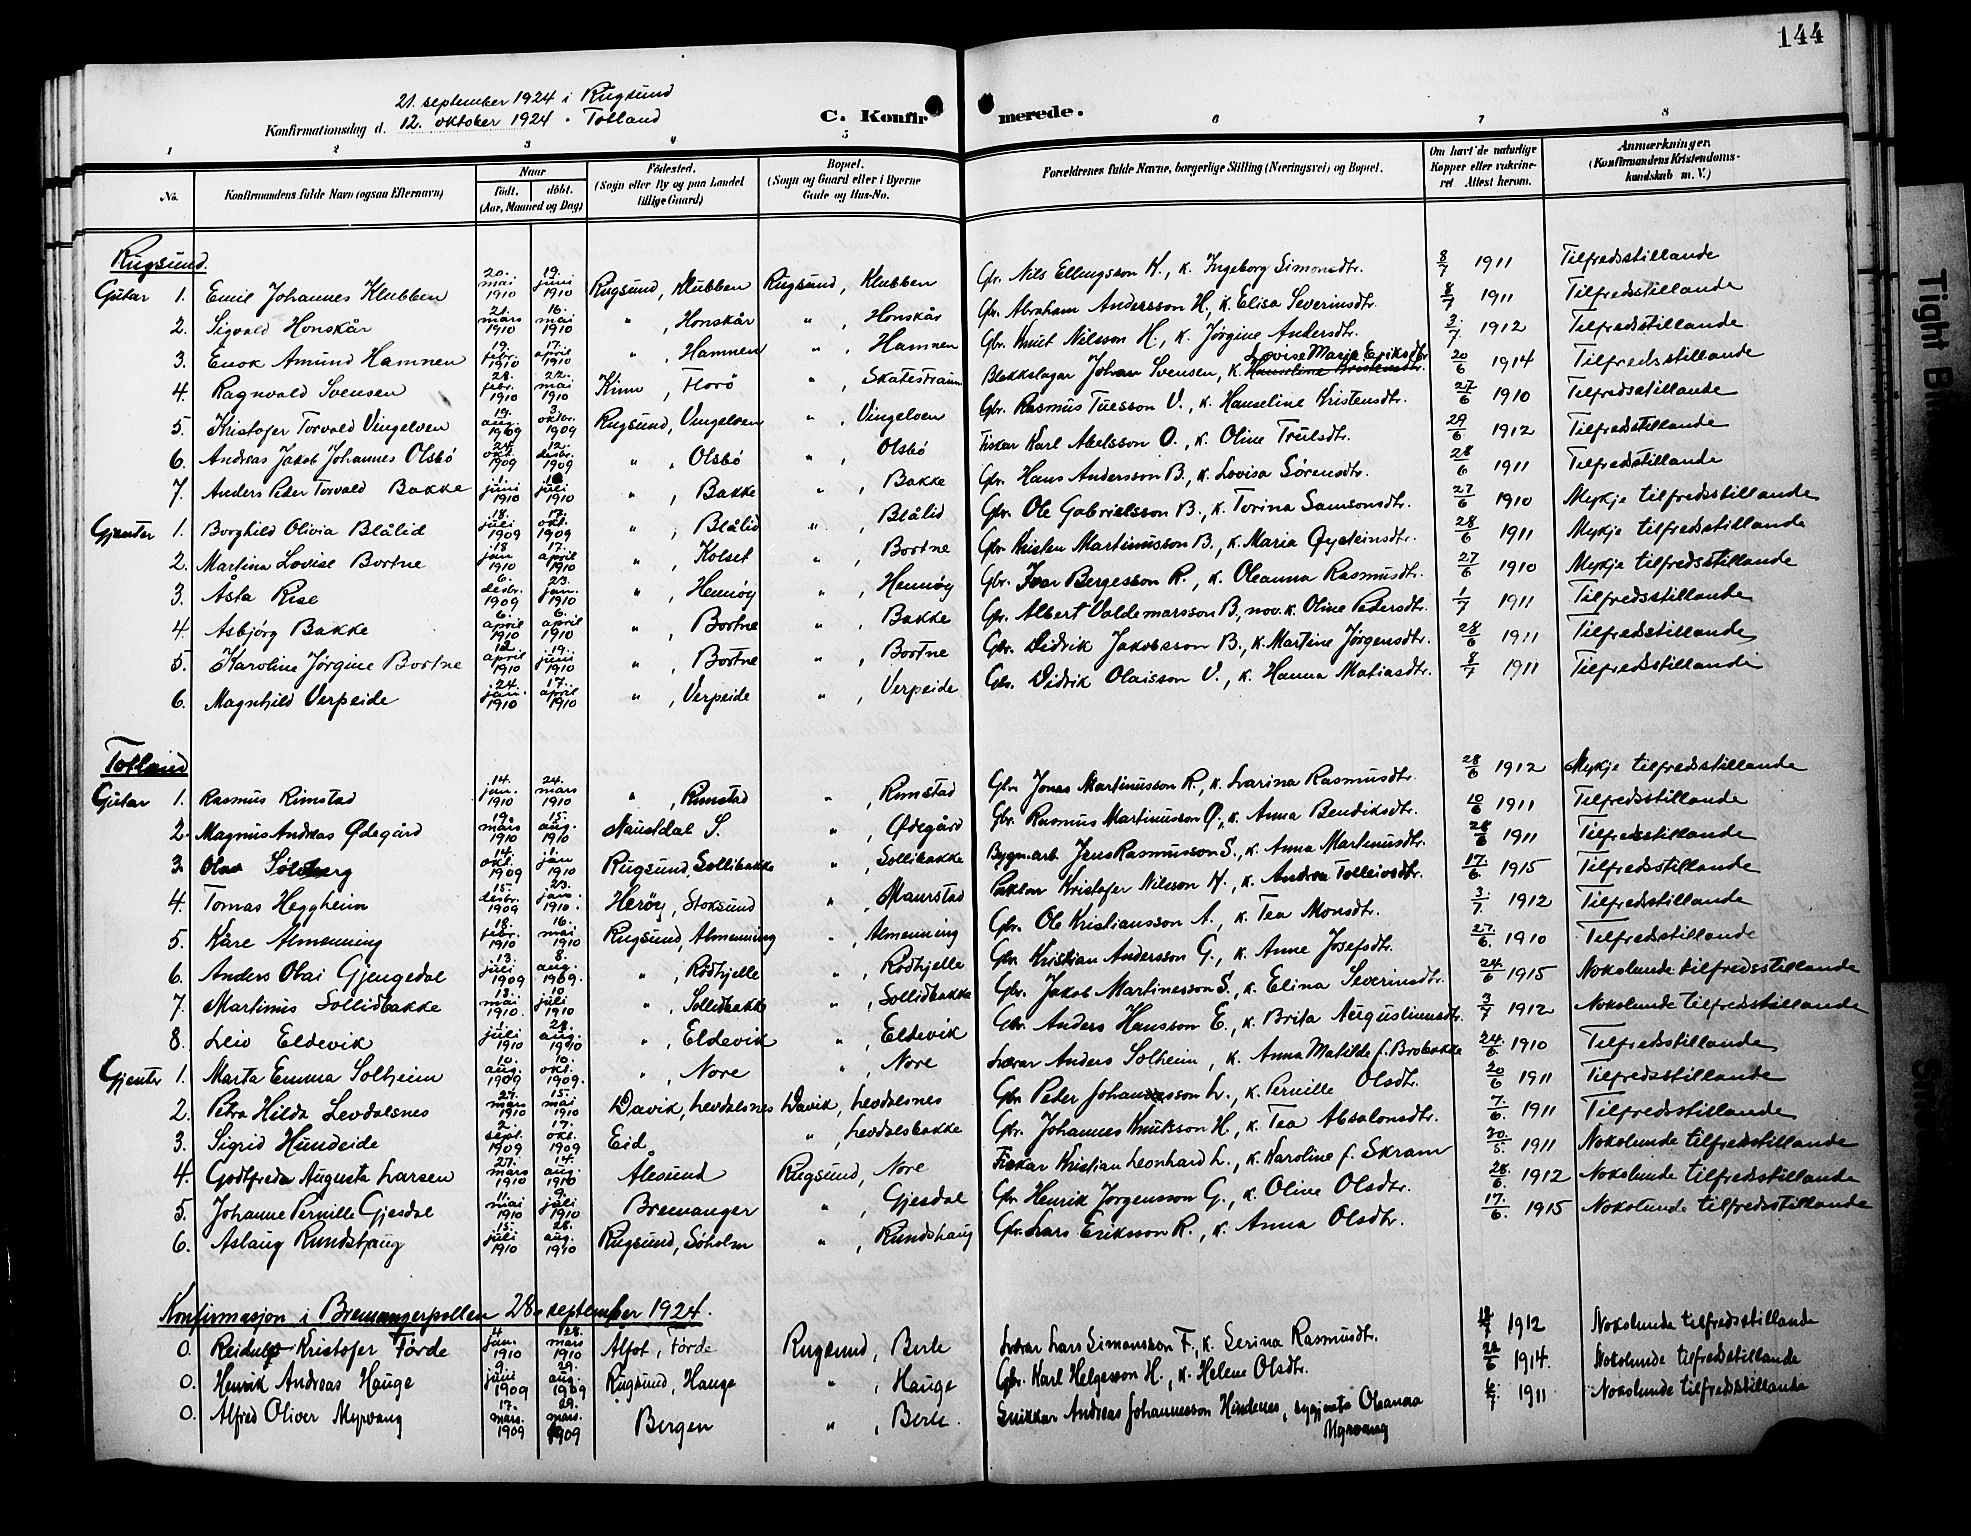 144
21. september 1924 i Rugsund
Konfirmationsdag d. 12. oktober 1924 - Totland
C. Konfirmerede.
1 2 3 4 5 6 7 8
No. Konfirmandens fulde Navn (ogsaa Efternavn) Naar født. døbt. (Aar, Maaned og Dag) Fødested. (Sogn eller By og paa Landet tillige Gaard) Bopæl. (Sogn og Gaard eller i Byerne Gade og Hus-No. Forældrenes fulde Navne, borgerlige Stilling (Næringsvei) og Bopæl. Om havt de naturlige Kopper eller vakcineret Attest herom. Anmærkninger. (Konfirmandens Kristendomskundskab m. V.)
Rugsund.
Gutar 1. Emil Johannes Klubben 20. mai 1910 19. juni 1910 Rugsund, Klubben Rugsund, Klubben Gbr. Nils Ellingsson K., k. Ingeborg Simonsdtr. 8/7 1911 Tilfredsstillande
2. Sigvald Honskår 21. mars 1910 16. mai 1910 " , Honskår " , Honskår Gbr. Abraham Andersson H., k. Elisa Severinsdtr. 8/7 1911 Tilfredsstillande
3. Enok Amund Hamnen 19. febr. 1910 17. april 1910 " , Hamnen " , Hamnen Gbr. Knut Nilsson H., k. Jørgine Andersdtr. 3/7 1912 Tilfredsstillande
4. Ragnvald Svensen 28. febr. 1910 22. mai 1910 Kinn, Florø " , Skatestraum Blekkslagar Johan Svensen, k. Lovise Marie Eriksdtr. 20/6 1914 Tilfredsstillande
5. Kristofer Torvald Vingelven 19. aug. 1909 3. oktbr. 1909 Rugsund, Vingelven " , Vingelven Gbr. Rasmus Tuesson V., k. Hanseline Kristensdtr. 27/6 1910 Tilfredsstillande
6. Andreas Jakob Johannes Olsbø 24. okt. 1909 12. desbr. 1909 " , Olsbø " , Olsbø Fiskar Karl Abelsson O., k. Oline Trulsdtr. 29/6 1912 Tilfredsstillande
7. Anders Peder Torvald Bakke juni 1910 juli 1910 " , Bakke " , Bakke Gbr. Hans Andersson B., k. Lovisa Sørensdtr. 28/6 1911 Tilfredsstillande
Gjenter 1. Borghild Olivia Blålid 18. juli 1909 17. okt. 1909 " , Blålid " , Blålid Gbr. Ole Gabrielsson B., k. Torina Samsonsdtr. 27/6 1910 Mykje tilfredsstillande
2. Martina Lovise Bortne 18. jan 1910 17. april 1910 " , Kolset " , Bortne Gbr. Kristen Martinusson B., k. Maria Øysteinsdtr. 28/6 1911 Mykje tilfredsstillande
3. Åsta Rise 6. desbr. 1909 23. jan. 1910 " , Hennøy " , Hennøy Gbr. Ivar Bergesson R., k. Oleanna Rasmusdtr. 27/6 1910 Mykje tilfredsstillande
4. Asbjørg Bakke 6. april 1910 6. april 1910 " , Bortne " , Bakke Gbr. Albert Valdemarsson B., nov. k. Oline Pedersdtr. 1/7 1911 Tilfredsstillande
5. Karoline Jørgine Bortne 12. april 1910 19. juni 1910 " , Bortne " , Bortne Gbr. Didrik Jakobsson B., k. Martine Jørgensdtr. 28/6 1911 Tilfredsstillande
6. Magnhild Verpeide 24. jan. 1910 17. april 1910 " , Verpeide " , Verpeide Gbr. Didrik Olaisson V., k. Hanna Matiasdtr. 8/7 1911 Tilfredsstillande
Totland
Gutar 1. Rasmus Rimstad 14. jan. 1910 24. mars 1910 " , Rimstad " , Rimstad Gbr. Jonas Martinusson R., k. Larina Rasmusdtr. 28/6 1912 Mykje tilfredsstillande
2. Magnus Andreas Ødegård 19. mars 1910 15. aug. 1910 Naustdal S. " , Ødegård Gbr. Rasmus Martinusson Ø., k. Anna Bendiksdtr. 10/6 1911 Tilfredsstillande
3. Olav Solberg 14. okt. 1909 1. jan 1910 Rugsund, Sollibakke " , Sollibakke Bygn.arb. Jens Rasmusson S., k. Anna Martinusdtr. 28/6 1911 Tilfredsstillande
4. Tomas Heggheim 15. desbr. 1909 23. jan. 1910. Herøy, Stoksund " , Maurstad Kristofer Nilsson H., k. Andrea Tolleivsdtr. 17/6 1915 Tilfredsstillande
5. Kåre Almenning 18. febr. 1910 16. mai 1910 Rugsund, Almenning " , Almenning Gbr. Ole Kristiansson A., k. Tea Monsdtr. 3/7 1912 Tilfredsstillande
6. Anders Olai Gjengedal 13. juli 1909 8. aug. 1909. " , Rödhjelle " , Rödhjelle Gbr. Kristian Andersson G., k. Anne Josefsdtr. 27/6. 1910 Tilfredsstillande
7. Martinus Sollidbakke 13. mai 1910. 10. juli 1910 " , Sollidbakke " , Sollidbakke Gbr. Jakob Martinesson S., k. Elina Severinsdtr. 24/6 1915 Nokolunde tilfredsstillande
8. Leiv Eldevik juli 1910 28. aug. 1910 " , Eldevik " , Eldevik Gbr. Anders Hansson E., k. Brita Augustinusdtr. 3/7 1912 Nokolunde tilfredsstillande
Gjenter 1. Marta Emma Solheim 10. aug. 1909 10. okt. 1909. " , Nore " , Nore Lærar Anders Solheim, k. Anna Matilde f. Brobakke 24/6. 1910 Tilfredsstillande
2. Petra Hilda Levdalsnes 27. mars 1910 15. mai 1910 Davik, Levdalsnes Davik, Levdalsnes Gbr. Peder Johannesson L., k. Pernille Olsdtr. 20/6 1911 Tilfredsstillande
3. Sigrid Hundeide 2. sept. 1909 17. okt. 1909 Eid " , Levdalsbakke Gbr. Johannes Knutsson H., k. Tea Absalonsdtr. 7/6. 1911 Tilfredsstillande
4. Godtfreda Augusta Larsen 27. mars 1910 14. aug. 1910 Ålesund Rugsund, Nore Fiskar Kristian Leonhard L., k. Karoline f. Skram 30/5. 1911 Nokolunde tilfredsstillande
5. Johanne Pernille Gjesdal 11. mai 1910 9. juli 1910 Bremanger " , Gjesdal Gbr. Henrik Jørgensson G., k. Oline Olsdtr. 28/6. 1912 Nokolunde tilfredsstillande
6. Aslaug Rundshaug 15. juli 1910 28. aug. 1910 Rugsund, Søholm " , Rundshaug Gbr. Lars Eriksson R., k. Anna Olsdtr. 17/6. 1915 Nokolunde tilfredsstillande
Konfirmasjon i Bremangerpollen 28. september 1924.
0. Reidulf Kristofer Førde 4. jan. 1910 28. mars 1910 Alfot, Førde Rugsund, Berle Lærar Lars Simonsson F., k. Serina Rasmusdtr. 1912 Nokolunde tilfredsstillande
0. Henrik Andreas Hauge 9. juni 1909 29. aug. 1909 Rugsund, Hauge " , Hauge Gbr. Karl Helgesson H., k. Helene Olsdtr. 22/6 1914. Nokolunde tilfredsstillande
0. Alfred Oliver Myrvang 17. mars. 1909 29. mars. 1909 Bergen " , Berle. Snikkar Andreas Johannesson Hindenes, sygjenta Oleanna Myrvang 6/7 1911 Nokolunde tilfredsstillande
Tight Bi